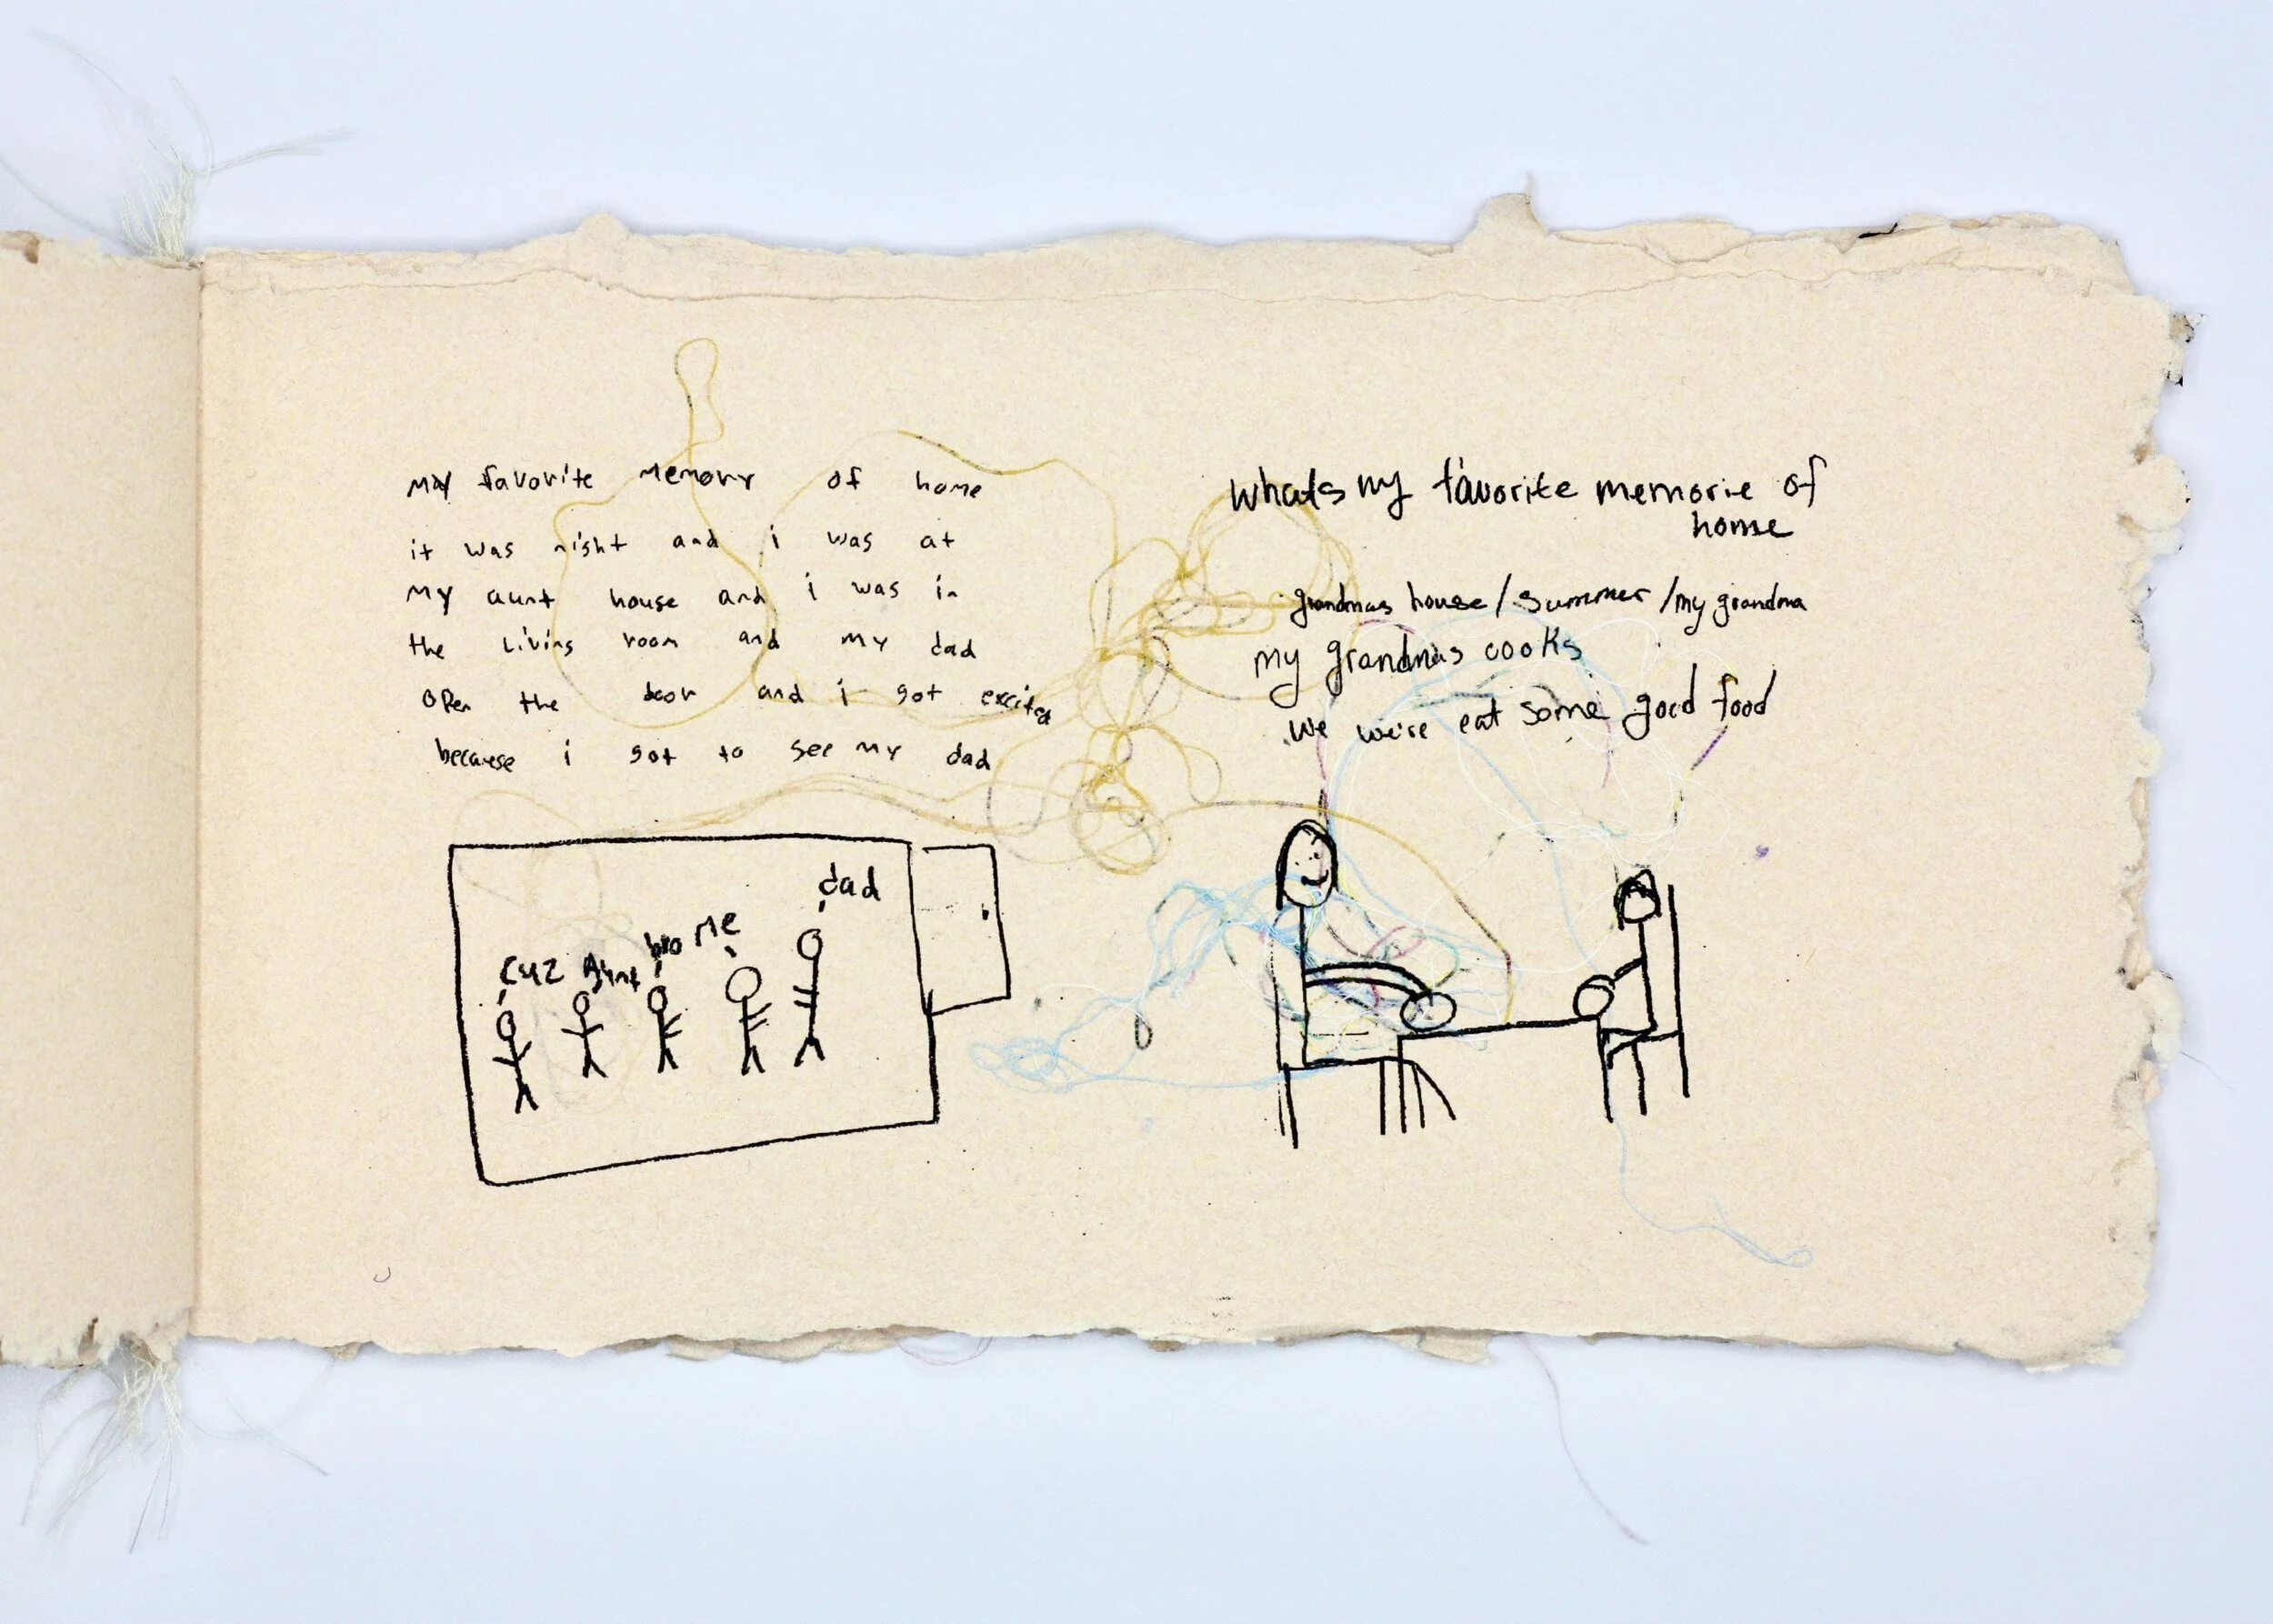 My favorite memory of home
it was night and i was at
my aunt house and i was in
the living room and my dad
open the door and i got excited
because i got to see my dad
cuz Aunt bro me dad
whats my favorite memorie of
home
grandmas house/summer/my grandma
my grandmas cooks
we we're eat some good food